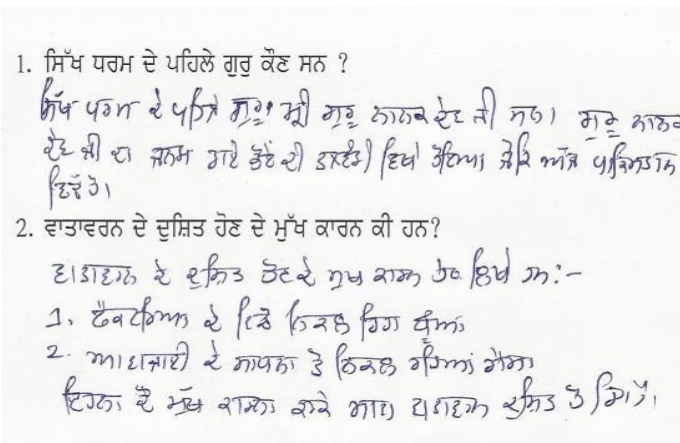 1. ਸਿੱਖ ਧਰਮ ਦੇ ਪਹਿਲੇ ਗੁਰੂ ਕੌਣ ਸਨ ?
ਸਿੱਖ ਧਰਮ ਦੇ ਪਹਿਲੇ ਗੁਰੂ ਸ੍ਰੀ ਗੁਰੂ ਨਾਨਕ ਦੇਵ ਜੀ ਸਨ। ਗੁਰੂ ਨਾਨਕ
ਦੇਵ ਜੀ ਦਾ ਜਨਮ ਰਾਏ ਭੋਏ ਦੀ ਤਲਵੰਡੀ ਵਿਖੇ ਹੋਇਆ ਜੋਕਿ ਅੱਜ ਪਾਕਿਸਤਾਨ
ਵਿੱਚ ਹੈ।
2. ਵਾਤਾਵਰਨ ਦੇ ਦੁਸ਼ਿਤ ਹੋਣ ਦੇ ਮੁੱਖ ਕਾਰਨ ਕੀ ਹਨ?
ਵਾਤਾਵਰਨ ਦੇ ਦੁਸ਼ਿਤ ਹੋਣ ਦੇ ਮੁਖ ਕਾਰਨ ਹੇਠ ਲਿਖੇ ਹਨ:-
1. ਫੈਕਟਰਿਆ ਦੇ ਵਿਚੋਂ ਨਿਕਲ ਰਿਹਾ ਧੂੰਆਂ
2. ਆਵਾਜਾਈ ਦੇ ਸਾਧਨਾ ਤੋਂ ਨਿਕਲ ਰਹਿਆਂ ਗੈਸਾ
ਇਹਨਾ ਦੋ ਮੁੱਖ ਕਾਰਨਾ ਕਾਰਕੇ ਸਾਡਾ ਵਾਤਾਵਰਨ ਦੁਸ਼ਿਤ ਹੋ ਰਿਹਾ ਹੈ।